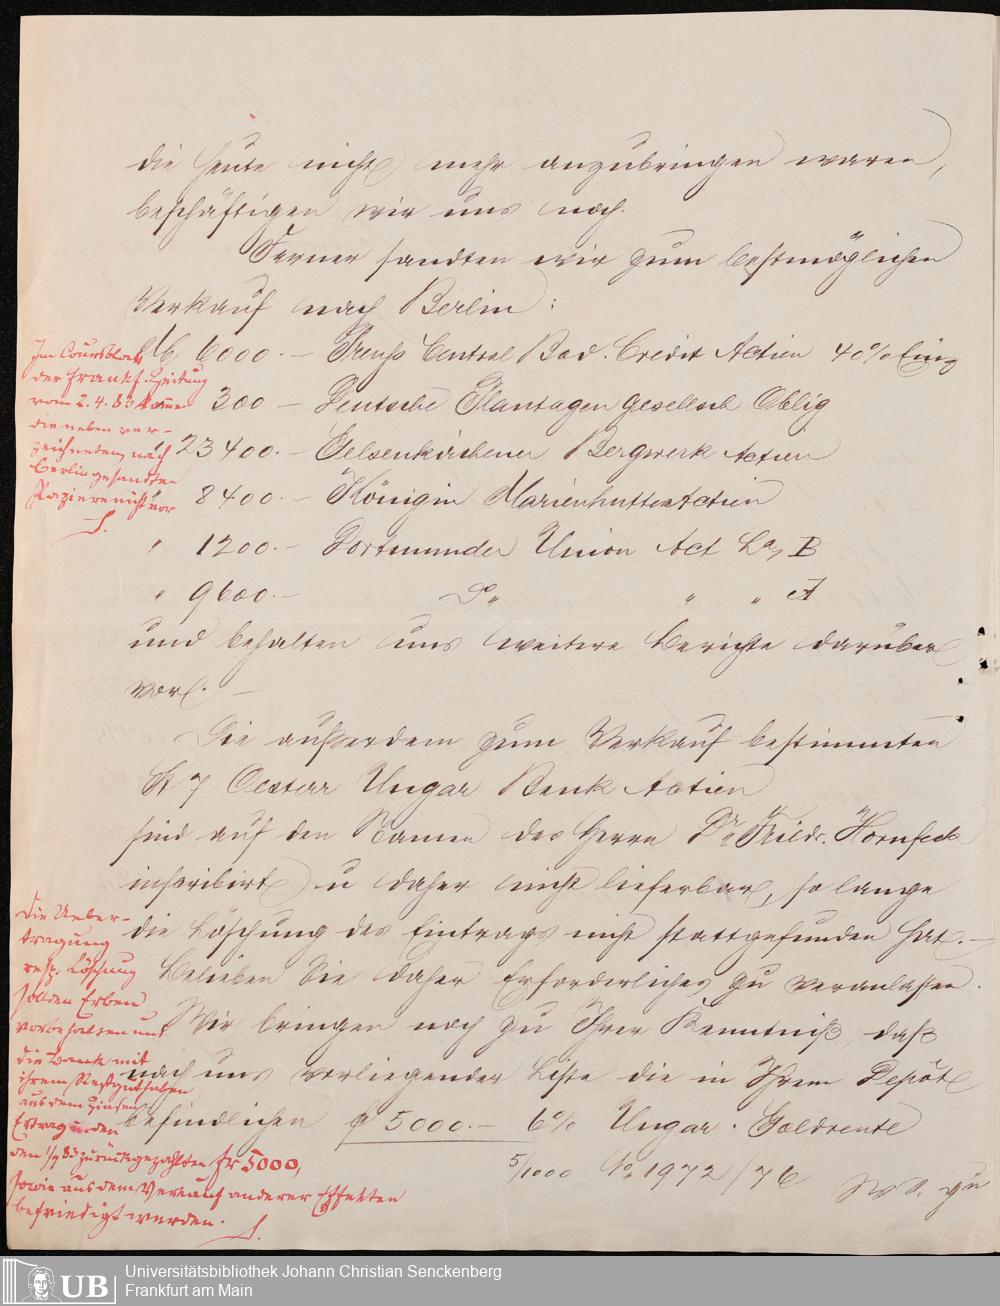 die heute nicht mehr anzubringen waren,
beschäftigen wir uns noch.
Ferner sandten wir zum bestmöglichen
Verkauf nach Berlin:
M 6000.— Preuß Central Bod. Credit Actien 40% Einz
300 — Deutsche Plantagen Gesellsch Oblig
" 23400.— Gelsenkirchener Bergwerk Actien
" 8400.— Königin Marienhütte Actien
" 1200.— Dortmunder Union Act La, B
" 9600.— Do " " A
und behalten uns weitere Berichte darüber
vor. —
Die außerdem zum Verkauf bestimmten
St 7 Oesterr Ungar Bank Actien
sind auf den Namen des Herrn Dr. Hornfeck
inscribirt u daher nicht lieferbar, so lange
die Löschung des Eintrags nicht stattgefunden hat. —
Belieben Sie daher Erforderliches zu veranlassen.
Wir bringen noch zu Ihrer Kenntniß, daß
nach uns vorliegender Liste die in Ihrem Depôt
befindlichen f 5000.— 6% Ungar. Goldrente
5/1000 No 1972/76
Im Coursblatt
der Frankf. Zeitung
vom 2.4.83 kommen
die neben ver-
zeichneten, nach
Berlin gesandten
Papiere nicht vor
Die Ueber-
tragung
resp. Löschung
soll den Erben
vorbehalten und
die Bank mit
ihrem Restguthaben
aus dem Zinsen
Ertrag u. den
den 1/7 83 zurückgezahlten fr 5000,
sowie aus dem Verkauf anderer Effekten
befriedigt werden.
Universitätsbibliothek Johann Christian Senckenberg
Frankfurt am Main
UB